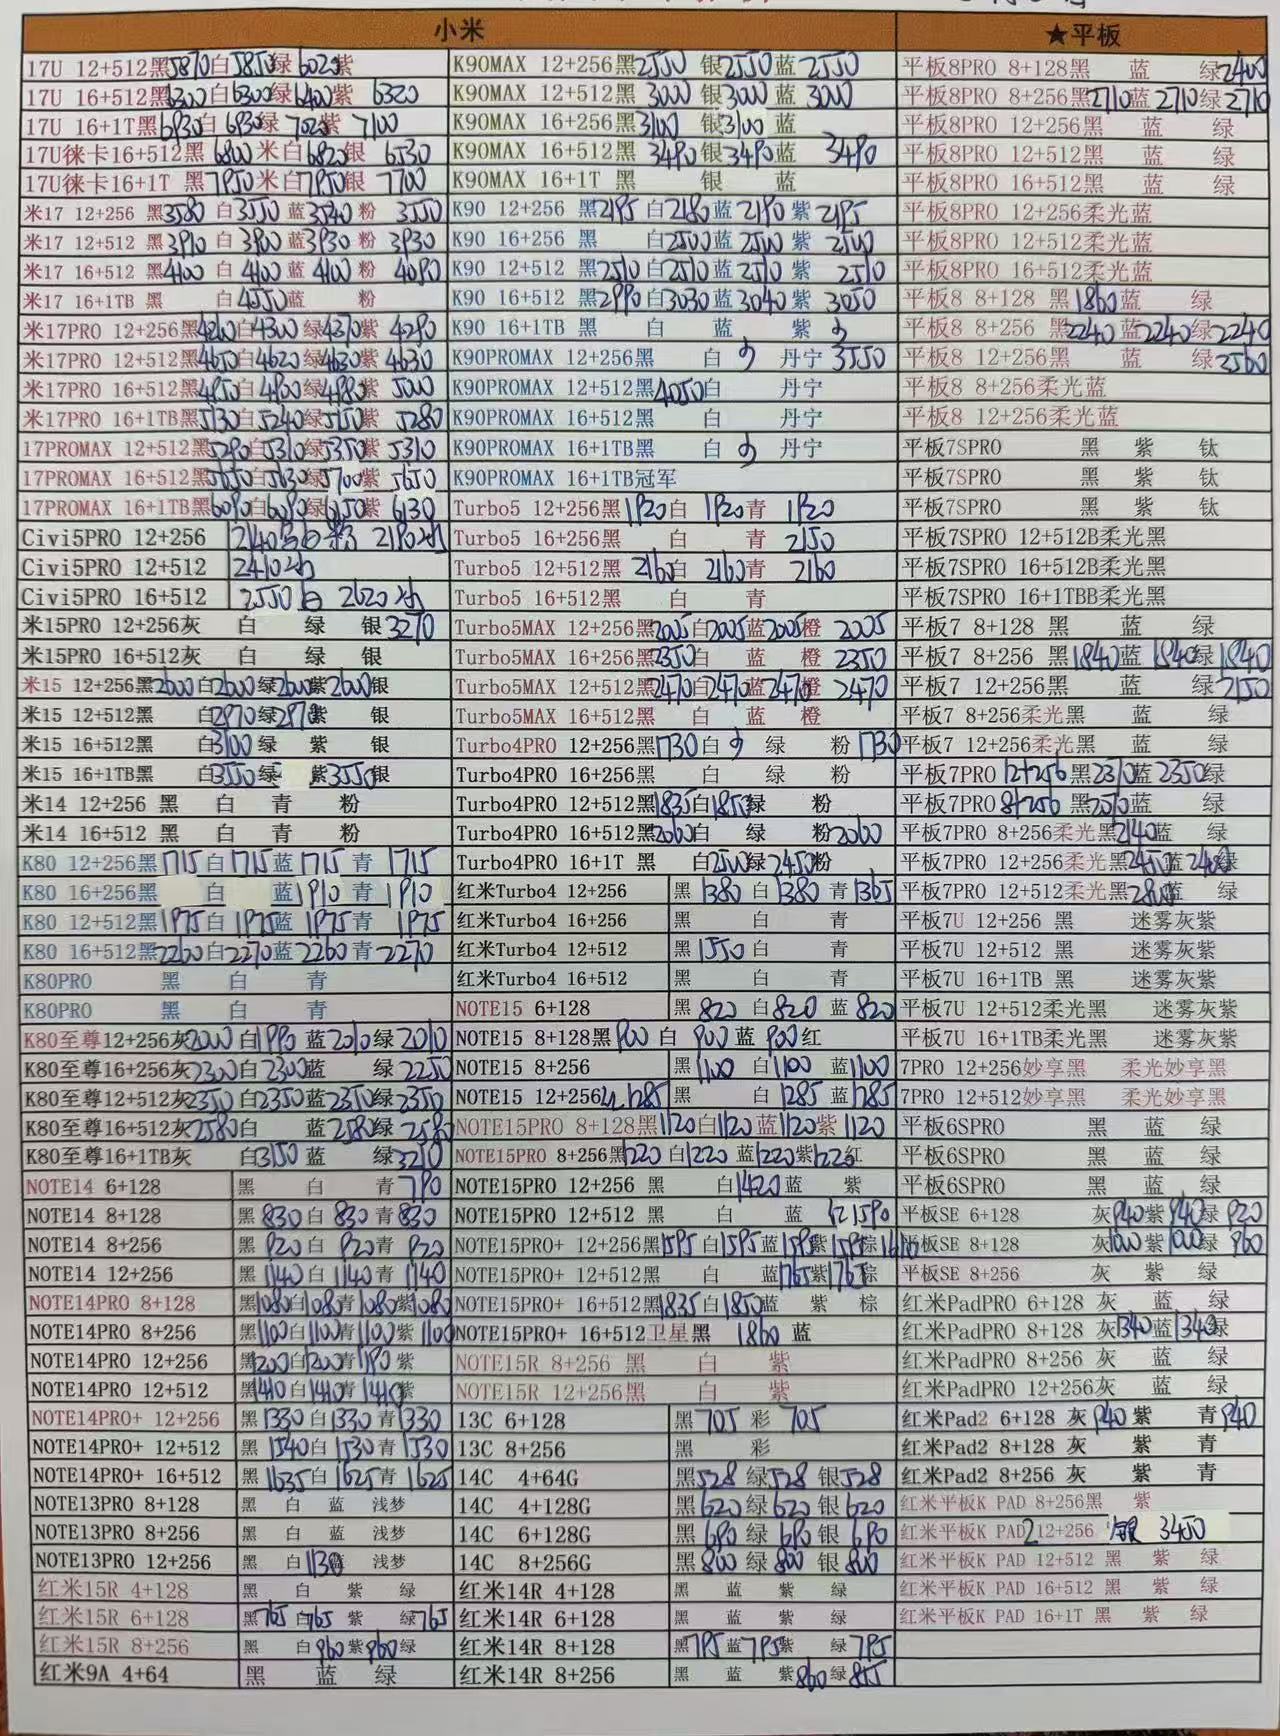 小米
★平板
17U 12+512黑5870白5850绿6020紫
17U 16+512黑6300白6300绿6400紫 6320
17U 16+1T黑6930白6930绿 7020紫 7100
17U徕卡16+512黑 6800 米白6820银 6530
17U徕卡16+1T 黑7950米白7950银 7700
米17 12+256 黑3580 白3550蓝3540粉 3550
米17 12+512 黑3910 白3900蓝3930 粉 3930
米17 16+512 黑4100 白 4100 蓝 4100 粉 4090
米17 16+1TB 黑 白4550蓝 粉
米17PRO 12+256黑4260白4300 绿4370紫 4290
米17PRO 12+512黑4650白4620绿4630紫 4630
米17PRO 16+512黑4950白4900绿4980紫 5000
米17PRO 16+1TB黑5130白5240绿5150紫 5280
17PROMAX 12+512黑5290白5310绿5350紫 5310
17PROMAX 16+512黑5650白5630绿5700紫 5650
17PROMAX 16+1TB黑6090白6090绿6150紫 6130
Civi5PRO 12+256 2140 白 粉 2190
Civi5PRO 12+512 2410
Civi5PRO 16+512 2550 白 2620
米15PRO 12+256灰 白 绿 银3270
米15PRO 16+512灰 白 绿 银
米15 12+256黑2600白2600绿2600紫2600银
米15 12+512黑 白2970绿2970紫 银
米15 16+512黑 白3100绿 紫 银
米15 16+1TB黑 白3550绿 紫3550银
米14 12+256 黑 白 青 粉
米14 16+512 黑 白 青 粉
K80 12+256黑1715白1715蓝1715 青 1715
K80 16+256黑 白 蓝1910 青1910
K80 12+512黑1975白1975蓝1975青 1975
K80 16+512黑2260白2270蓝2260青 2270
K80PRO 黑 白 青
K80PRO 黑 白 青
K80至尊12+256灰2000白1990蓝2010绿2010
K80至尊16+256灰2300白2300蓝 绿 2250
K80至尊12+512灰2350白2350蓝2350绿2350
K80至尊16+512灰2580白 蓝2580绿 2580
K80至尊16+1TB灰 白3150蓝 绿3210
NOTE14 6+128 黑 白 青790
NOTE14 8+128 黑 830白 830 青830
NOTE14 8+256 黑 920白 920青 920
NOTE14 12+256 黑1140白1140青1140
NOTE14PRO 8+128 黑1080白1080青1080紫1080
NOTE14PRO 8+256 黑1100白1100青1100紫1100
NOTE14PRO 12+256 黑1200白1200青1190紫
NOTE14PRO 12+512 黑1410白1410青1410紫
NOTE14PRO+ 12+256 黑1330白1330青1330
NOTE14PRO+ 12+512 黑1540白1530青1530
NOTE14PRO+ 16+512 黑1635白1625青1625
NOTE13PRO 8+128 黑 白 蓝 浅梦
NOTE13PRO 8+256 黑 白 蓝 浅梦
NOTE13PRO 12+256 黑 白1130蓝 浅梦
红米15R 4+128 黑 白 紫 绿
红米15R 6+128 黑765白765紫 绿765
红米15R 8+256 黑 白960紫960绿
红米9A 4+64 黑 蓝 绿
K90MAX 12+256黑2550 银2550蓝 2550
K90MAX 12+512黑 3000 银3000蓝 3000
K90MAX 16+256黑3100 银3100蓝
K90MAX 16+512黑 3490银3490蓝 3490
K90MAX 16+1T 黑 银 蓝
K90 12+256 黑2195白2180蓝 2190紫2195
K90 16+256 黑 白2500蓝 2500紫 2500
K90 12+512 黑2510白2510蓝 2510紫 2510
K90 16+512 黑2990白3030蓝3040紫 3050
K90 16+1TB 黑 白 蓝 紫
K90PROMAX 12+256黑 白 丹宁3550
K90PROMAX 12+512黑4050白 丹宁
K90PROMAX 16+512黑 白 丹宁
K90PROMAX 16+1TB黑 白 丹宁
K90PROMAX 16+1TB冠军
Turbo5 12+256黑1920白 1920青 1920
Turbo5 16+256黑 白 青 2150
Turbo5 12+512黑 2160白 2160青 2160
Turbo5 16+512黑 白 青
Turbo5MAX 12+256黑2005白2005蓝2005橙 2005
Turbo5MAX 16+256黑2350白 蓝 橙 2350
Turbo5MAX 12+512黑2470白2470蓝2470橙 2470
Turbo5MAX 16+512黑 白 蓝 橙
Turbo4PRO 12+256黑1730白 绿 粉1730
Turbo4PRO 16+256黑 白 绿 粉
Turbo4PRO 12+512黑1835白1850绿 粉
Turbo4PRO 16+512黑2060白 绿 粉2060
Turbo4PRO 16+1T 黑 白2500绿2450粉
红米Turbo4 12+256 黑 1380 白1380 青1365
红米Turbo4 16+256 黑 白 青
红米Turbo4 12+512 黑1550白 青
红米Turbo4 16+512 黑 白 青
NOTE15 6+128 黑 820 白820 蓝 820
NOTE15 8+128黑900白 900蓝 900红
NOTE15 8+256 黑1100 白1100 蓝1100
NOTE15 12+256红1285 黑 白1285蓝1285
NOTE15PRO 8+128黑1120白1120蓝1120紫 1120
NOTE15PRO 8+256黑1220 白1220 蓝1220紫1220红
NOTE15PRO 12+256 黑 白1420蓝 紫
NOTE15PRO 12+512 黑 白 蓝 红1590
NOTE15PRO+ 12+256黑1595白1595蓝1595紫1595棕1610
NOTE15PRO+ 12+512黑 白 蓝1765紫1765棕
NOTE15PRO+ 16+512黑1835白1850蓝 紫 棕
NOTE15PRO+ 16+512卫星黑 1860 蓝
NOTE15R 8+256 黑 白 紫
NOTE15R 12+256黑 白 紫
13C 6+128 黑705 彩 705
13C 8+256 黑 彩
14C 4+64G 黑528 绿528 银528
14C 4+128G 黑620绿620 银620
14C 6+128G 黑690绿 690银 690
14C 8+256G 黑800绿800 银 800
红米14R 4+128 黑 蓝 紫 绿
红米14R 6+128 黑 蓝 紫 绿
红米14R 8+128 黑795蓝795紫 绿795
红米14R 8+256 黑 蓝 紫860绿855
平板8PRO 8+128黑 蓝 绿2400
平板8PRO 8+256黑2710蓝 2710绿2710
平板8PRO 12+256黑 蓝 绿
平板8PRO 12+512黑 蓝 绿
平板8PRO 16+512黑 蓝 绿
平板8PRO 12+256柔光蓝
平板8PRO 12+512柔光蓝
平板8PRO 16+512柔光蓝
平板8 8+128 黑1860蓝 绿
平板8 8+256 黑2240蓝2240绿2240
平板8 12+256黑 蓝 绿2560
平板8 8+256柔光蓝
平板8 12+256柔光蓝
平板7SPRO 黑 紫 钛
平板7SPRO 黑 紫 钛
平板7SPRO 黑 紫 钛
平板7SPRO 12+512B柔光黑
平板7SPRO 16+512B柔光黑
平板7SPRO 16+1TBB柔光黑
平板7 8+128 黑 蓝 绿
平板7 8+256 黑1840蓝 1840绿1840
平板7 12+256黑 蓝 绿2150
平板7 8+256柔光黑 蓝 绿
平板7 12+256柔光黑 蓝 绿
平板7PRO 12+256黑2310蓝2350绿
平板7PRO 8+256 黑2050蓝 绿
平板7PRO 8+256柔光黑2140蓝 绿
平板7PRO 12+256柔光黑2450蓝2400绿
平板7PRO 12+512柔光黑2800蓝 绿
平板7U 12+256 黑 迷雾灰紫
平板7U 12+512 黑 迷雾灰紫
平板7U 16+1TB 黑 迷雾灰紫
平板7U 12+512柔光黑 迷雾灰紫
平板7U 16+1TB柔光黑 迷雾灰紫
7PRO 12+256妙享黑 柔光妙享黑
7PRO 12+512妙享黑 柔光妙享黑
平板6SPRO 黑 蓝 绿
平板6SPRO 黑 蓝 绿
平板6SPRO 黑 蓝 绿
平板SE 6+128 灰940紫940绿 920
平板SE 8+128 灰1000紫1000绿 960
平板SE 8+256 灰 紫 绿
红米PadPRO 6+128 灰 蓝 绿
红米PadPRO 8+128 灰1340蓝1340绿
红米PadPRO 8+256 灰 蓝 绿
红米PadPRO 12+256灰 蓝 绿
红米Pad2 6+128 灰940紫 青940
红米Pad2 8+128 灰 紫 青
红米Pad2 8+256 灰 紫 青
红米平板K PAD 8+256黑 紫
红米平板K PAD2 12+256 银 3450
红米平板K PAD 12+512 黑 紫 绿
红米平板K PAD 16+512 黑 紫 绿
红米平板K PAD 16+1T 黑 紫 绿